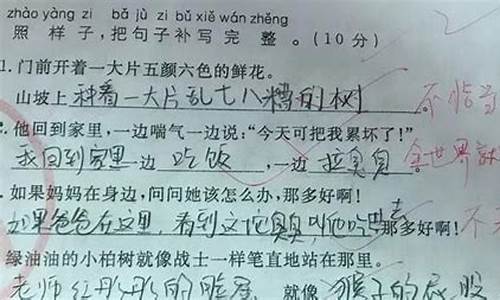 zhào yàng zi bǎ jù zi bǔ xiě wán zhěng
照样子,把句子补写完整。(10分)
1.门前开着一大片五颜六色的鲜花。
山坡上种着一大片乱七八糟的树 不恰当
他回到家里,一边喘气一边说:“今天可把我累坏了!”
我回到家里一边吃饭,一边拉臭臭。 全世界
.如果妈妈在身边,问问她该怎么办,那多好啊!
如果爸爸在这里,看到这坨臭臭叫他吃去那多好啊! 不
绿油油的小柏树就像战士一样笔直地站在那里。
老师红彤彤的脸蛋就像猴子的屁股